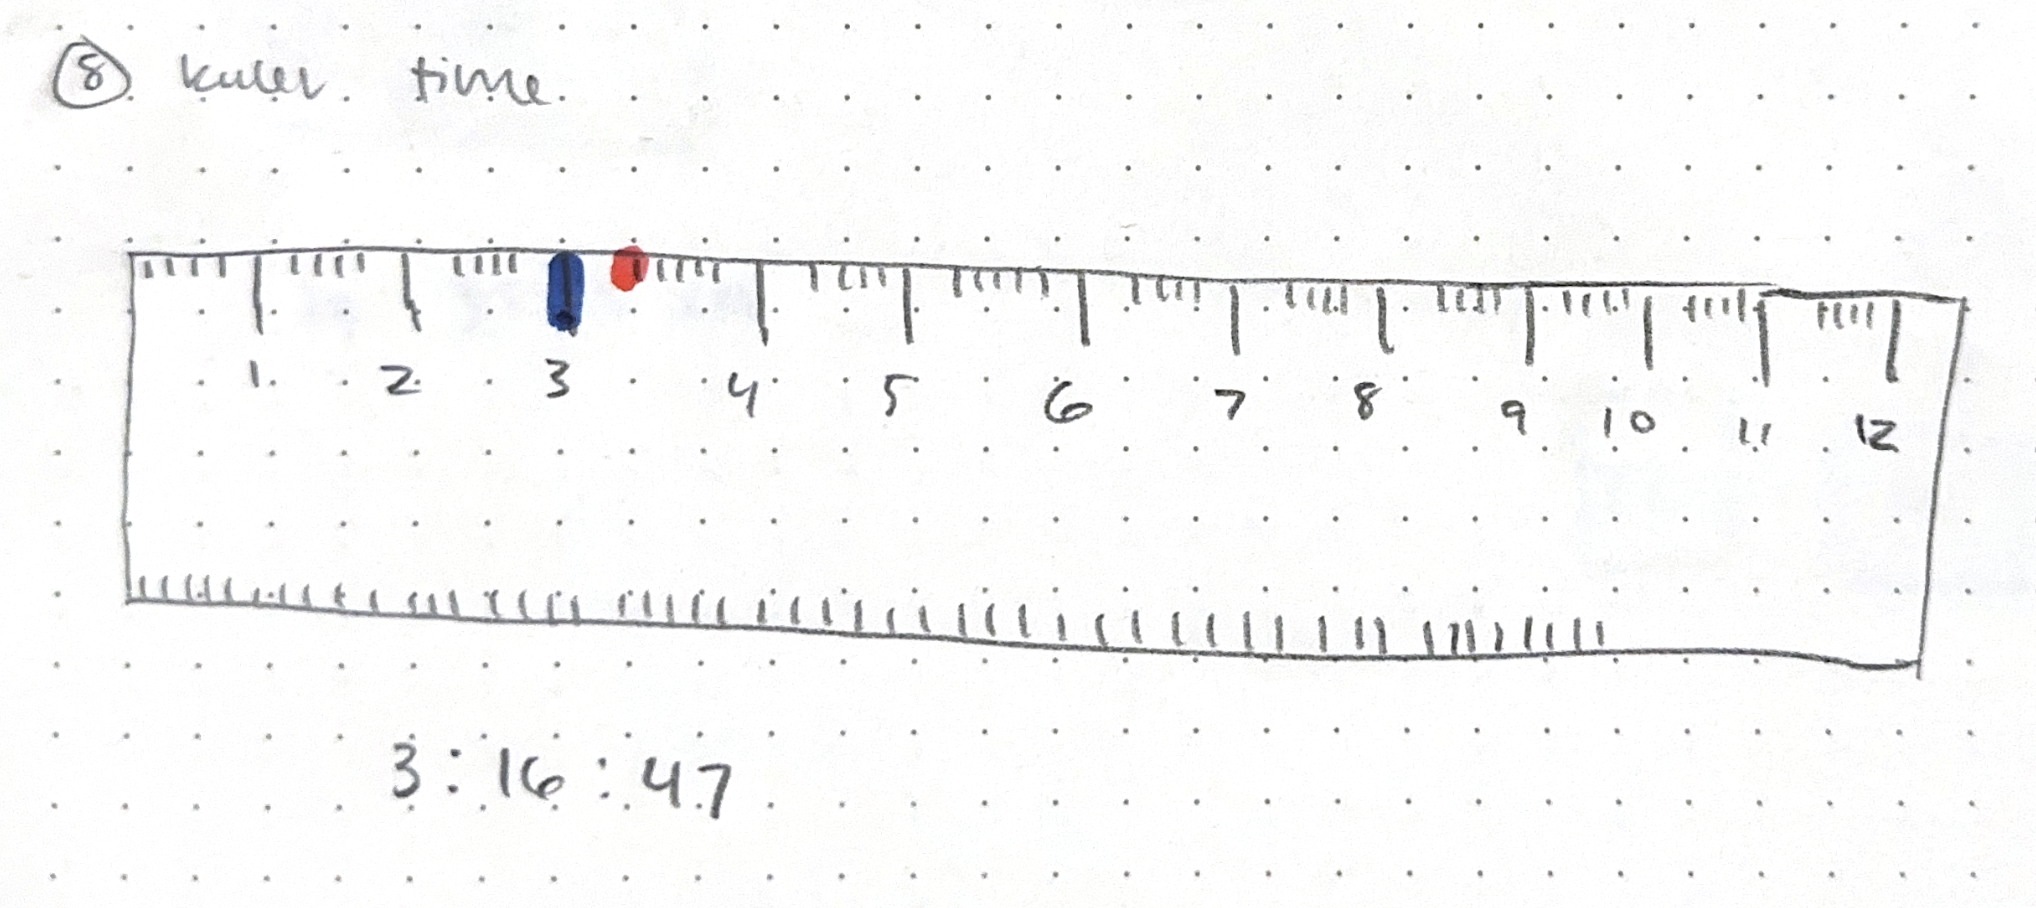 8 ruler time
1 2 3 4 5 6 7 8 9 10 11 12
3:16:47